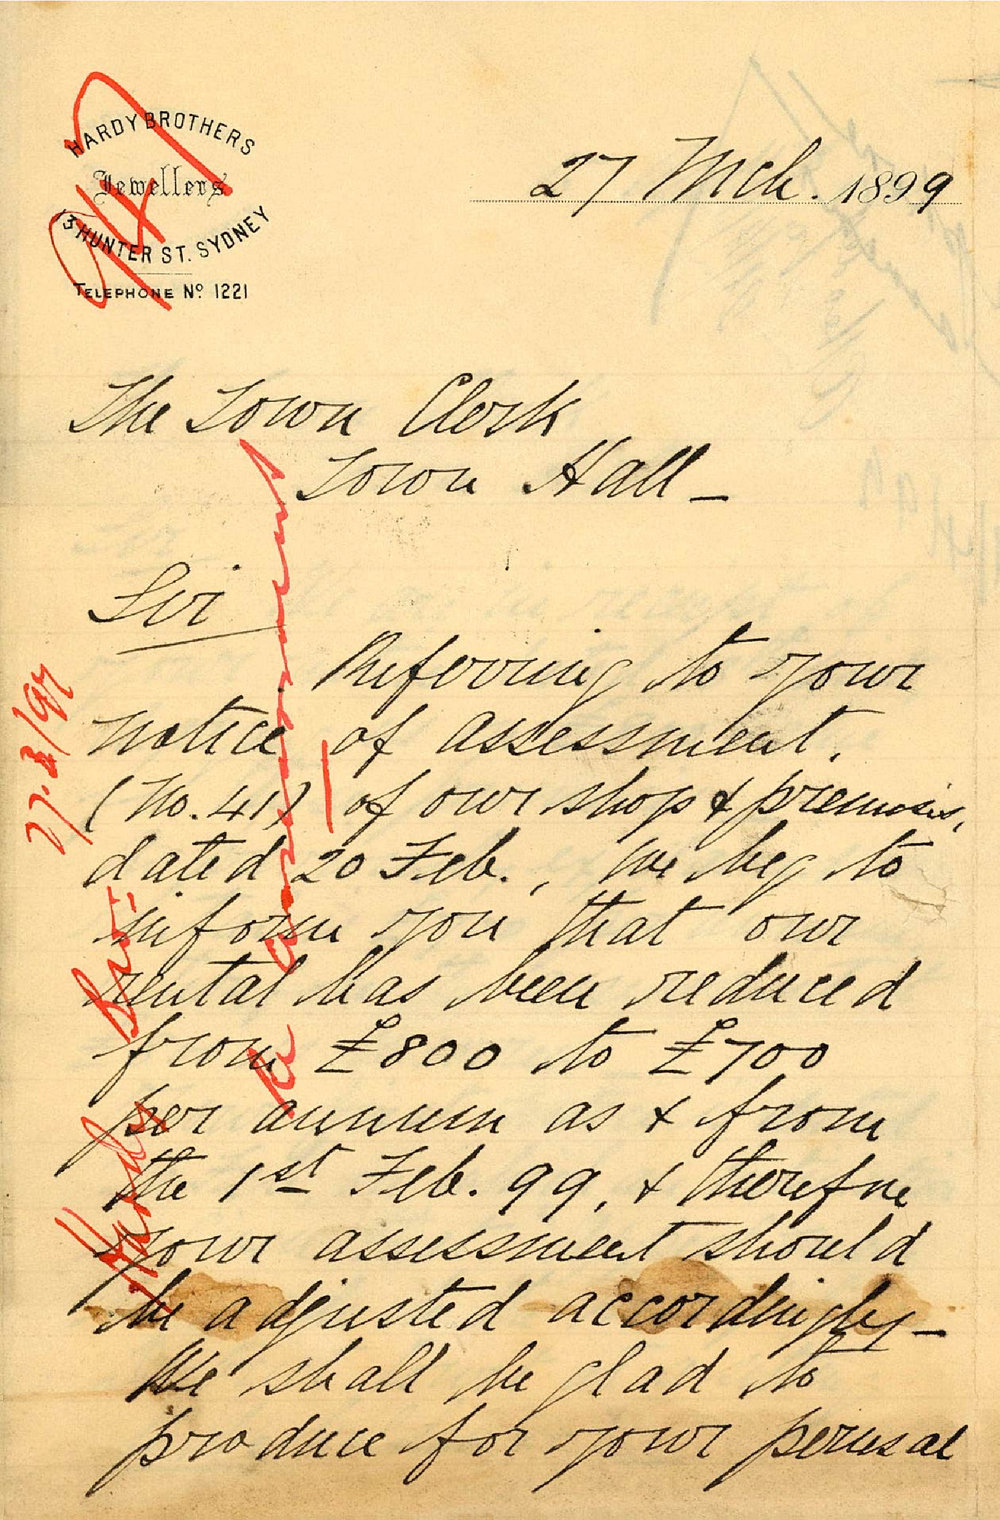 HARDY BROTHERS
Jewellers
13 HUNTER ST. SYDNEY
TELEPHONE Nº 1221
27 Mch. 1899
The Town Clerk
Town Hall –
Sir
Referring to your
notice of assessment.
(No. 41) of our shop & premises,
dated 20 Feb., we beg to
inform you that our
rental has been reduced
from £800 to £700
per annum as & from
the 1st Feb. 99, & therefore
your assessment should
be adjusted accordingly –
We shall be glad to
produce for your perusal
Hardy Bros
re assessment